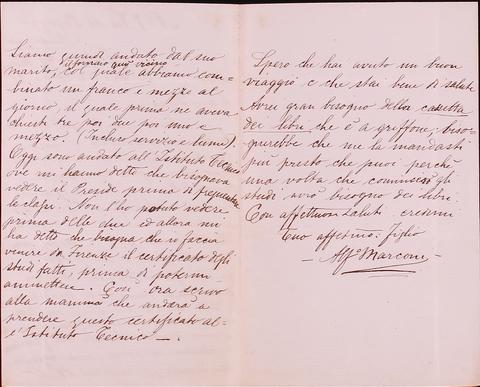 Siamo quindi andato dal suo
il fornaio qui vicino
marito, col quale abbiamo com=
binato un franco e mezzo al
giorno il quale prima ne aveva
chiesti tre poi due poi uno e
mezzo. (Incluso servizio e lume).
Oggi sono andato all'Istituto Tecnico
ove mi hanno detto che bisognava
vedere il Preside prima di frequentare
le classi. Non l'ho potuto vedere
prima delle due ed allora mi
ha detto che bisogna che io faccia
venire da Firenze il certificato degli
studi fatti, prima di potermi
ammettere. Così ora scrivo
alla mamma che andará a
prendere questo certificato al=
l'Istituto Tecnico —.
Spero che hai avuto un buon
viaggio e che stai bene di salute
Avrei gran bisogno della cassetta
dei libri che è a Griffone, biso=
gnerebbe che me la mandasti
più presto che puoi perchè
una volta che comincio gli
studi avrò bisogno dei libri.
Con affettuosi saluti credimi
tuo affezmo: figlio
— Alfo Marconi —